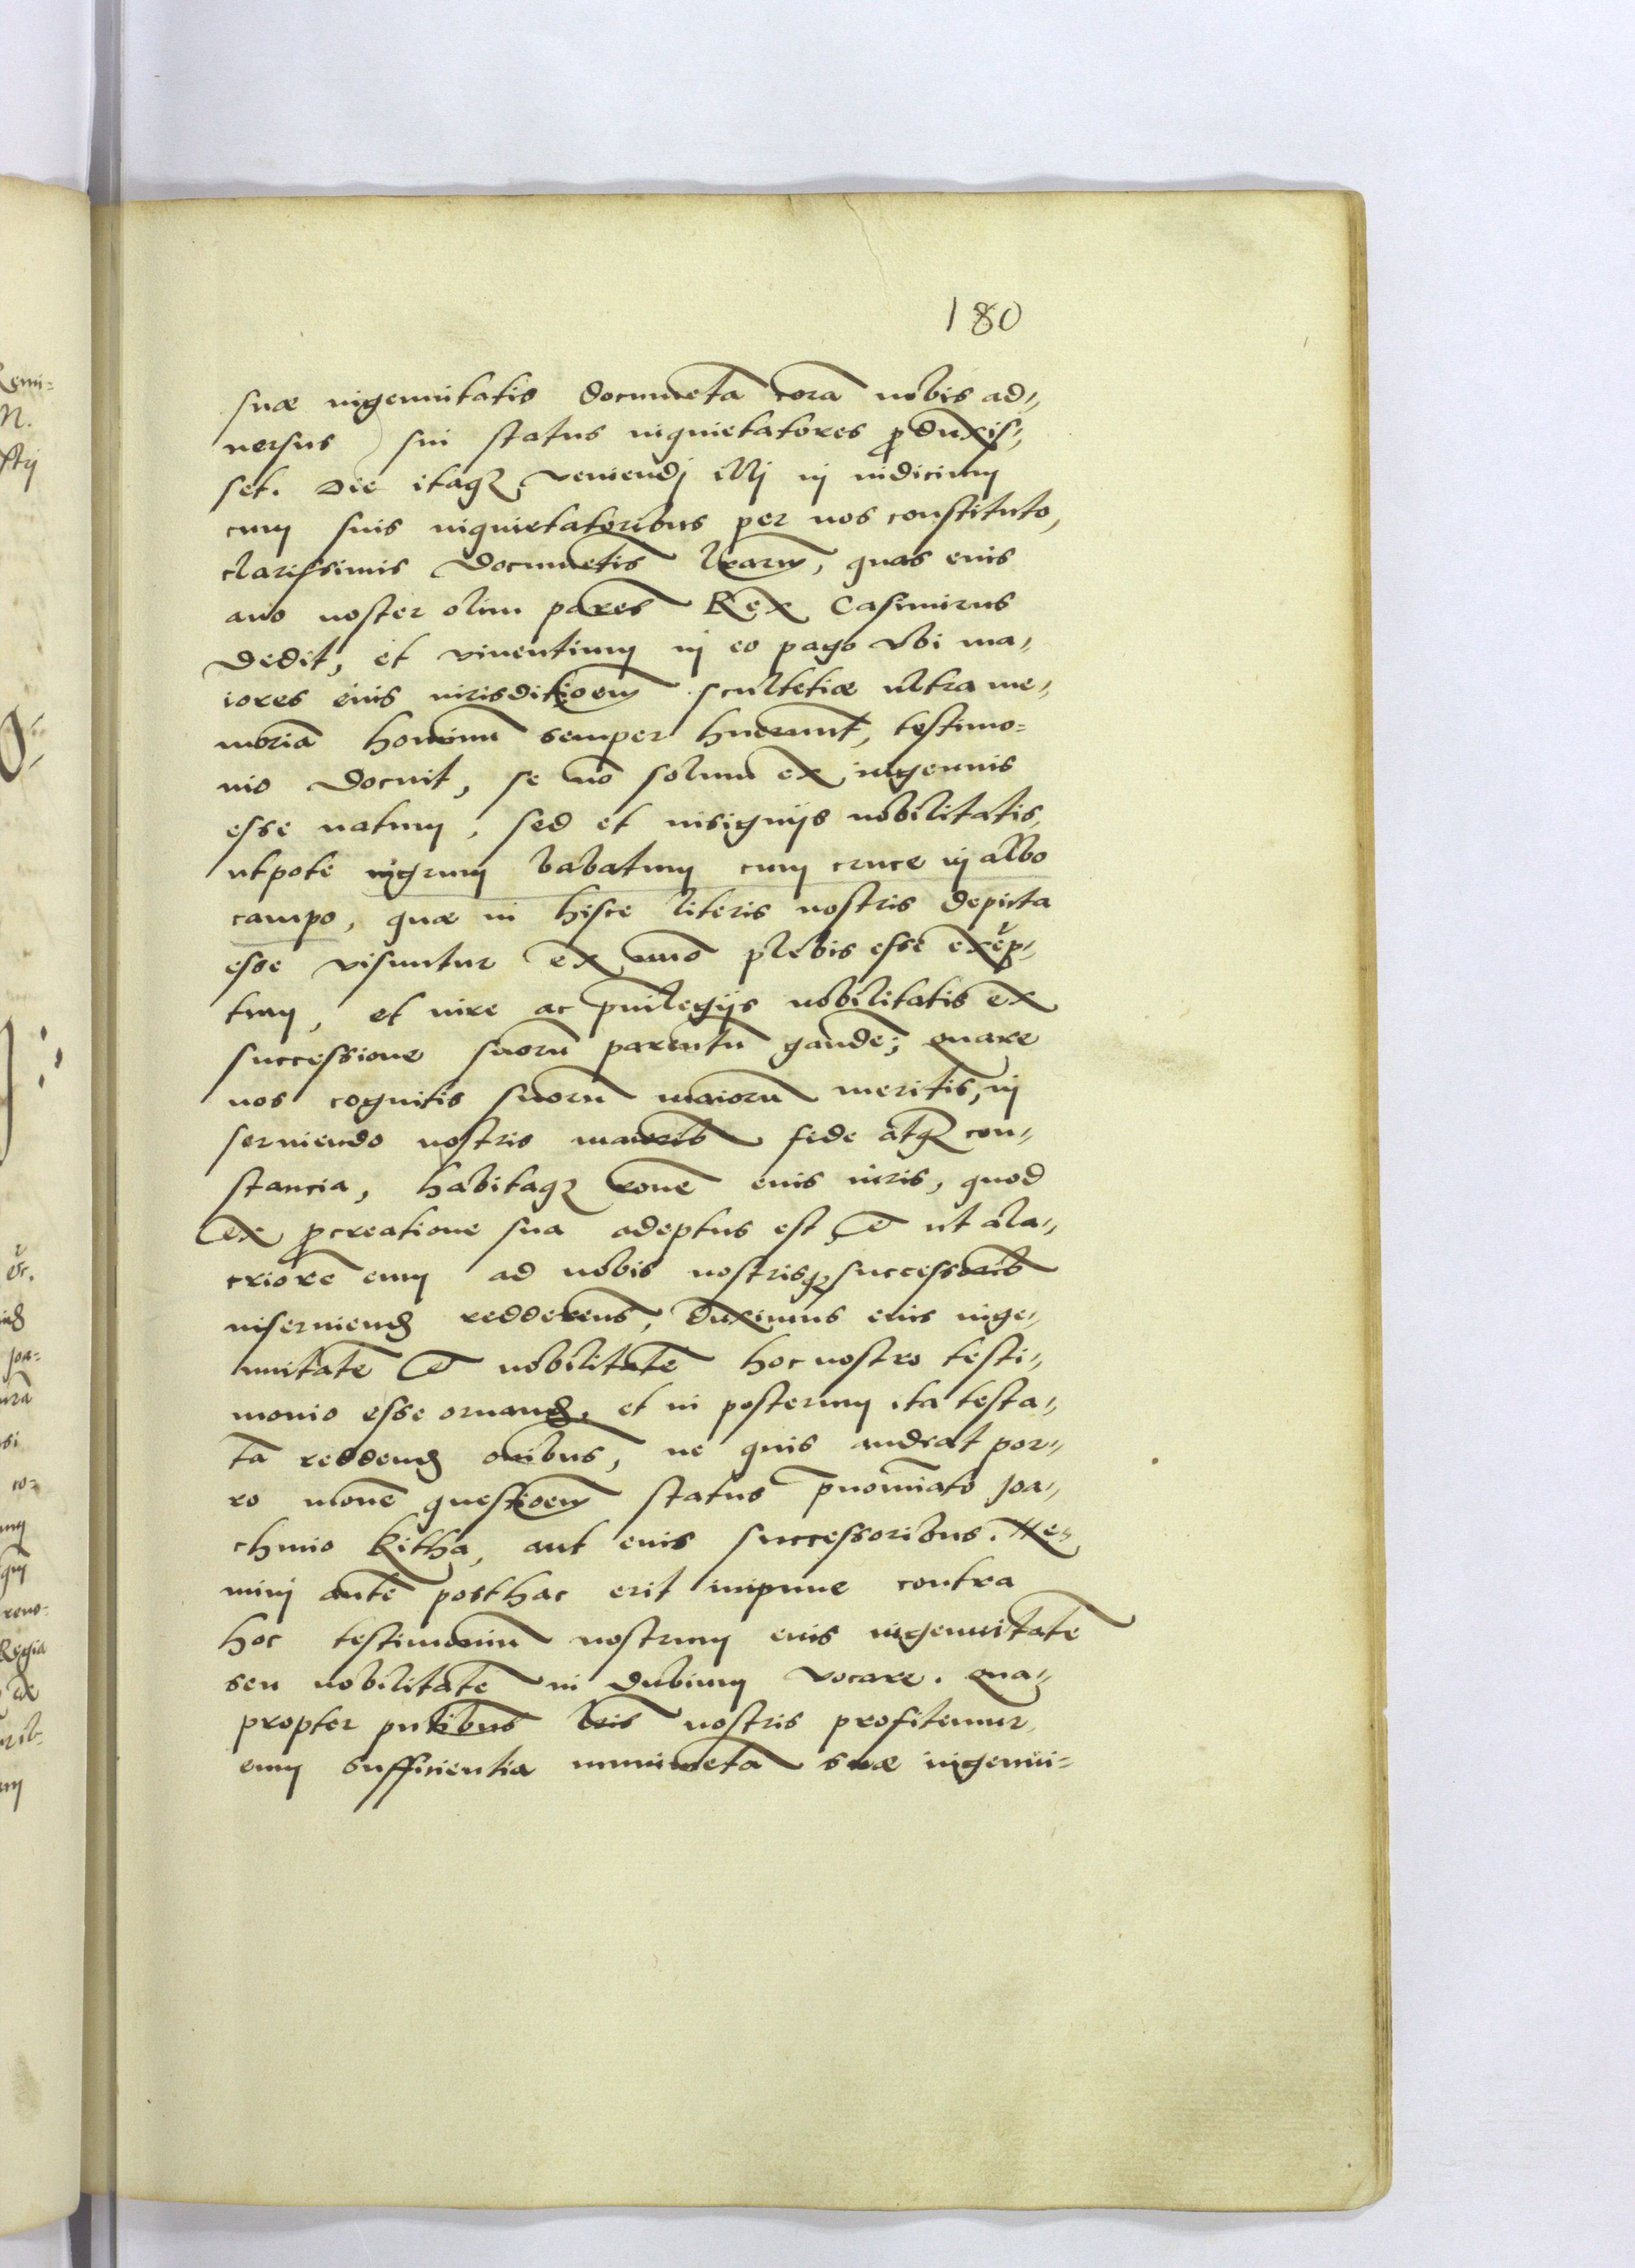 180
suæ ingenuitatis documēta corā nobis ad„
uersus sui status inquietatores ꝓduxis„
set. Die itaqꝫ veniendj illj in iudicium
cum suis inquietatoribus per nos constituto,
clarissimis documētis lrarum, quas eius
auo noster olim pares Rex Casimirus
dedit, et viuentium in eo pago vbi ma„
iores eius iurisditioem scultetiæ ultra me„
moriā hominū semper huerunt, testimo=
nio docuit, se nō solum ex ingenuis
esse natum, sed et insignijs nobilitatis,
utpote nigrum babatum cum cruce in albo
campo, quæ in hisce literis nostris depicta
esse visuntur ex imo plebis esse exēp„
tum, et iure ac priuilegijs nobilitatis ex
successione suorū parentū gaudē; quare
nos cognitis suorū maiorū meritis, in
seruiendo nostris maiorib fide atqꝫ con„
stancia, habitaqꝫ rone eius iuris, quod
ex ꝓcreatione sua adeptus est Et ut ala„
criorē eum ad nobis nostrisqꝫ successorib
inseruiend redderems, duximus eius inge„
nuitatē Et nobilitatē hoc nostro testi„
monio esse ornand, et in posterum ita testa„
tā reddend oibus, ne quis audeat por„
ro mouē questioem status pnoīato Joa„
chimo Kitha, aut eius successoribus. Ne„
mini autē posthac erit impune contra
hoc testimoniū nostrum eius ingenuitatē
seu nobilitatē in dubium vocare. Qua„
propter pntibus lris nostris profitemur
eum sufficientia munimēta suæ ingenui=